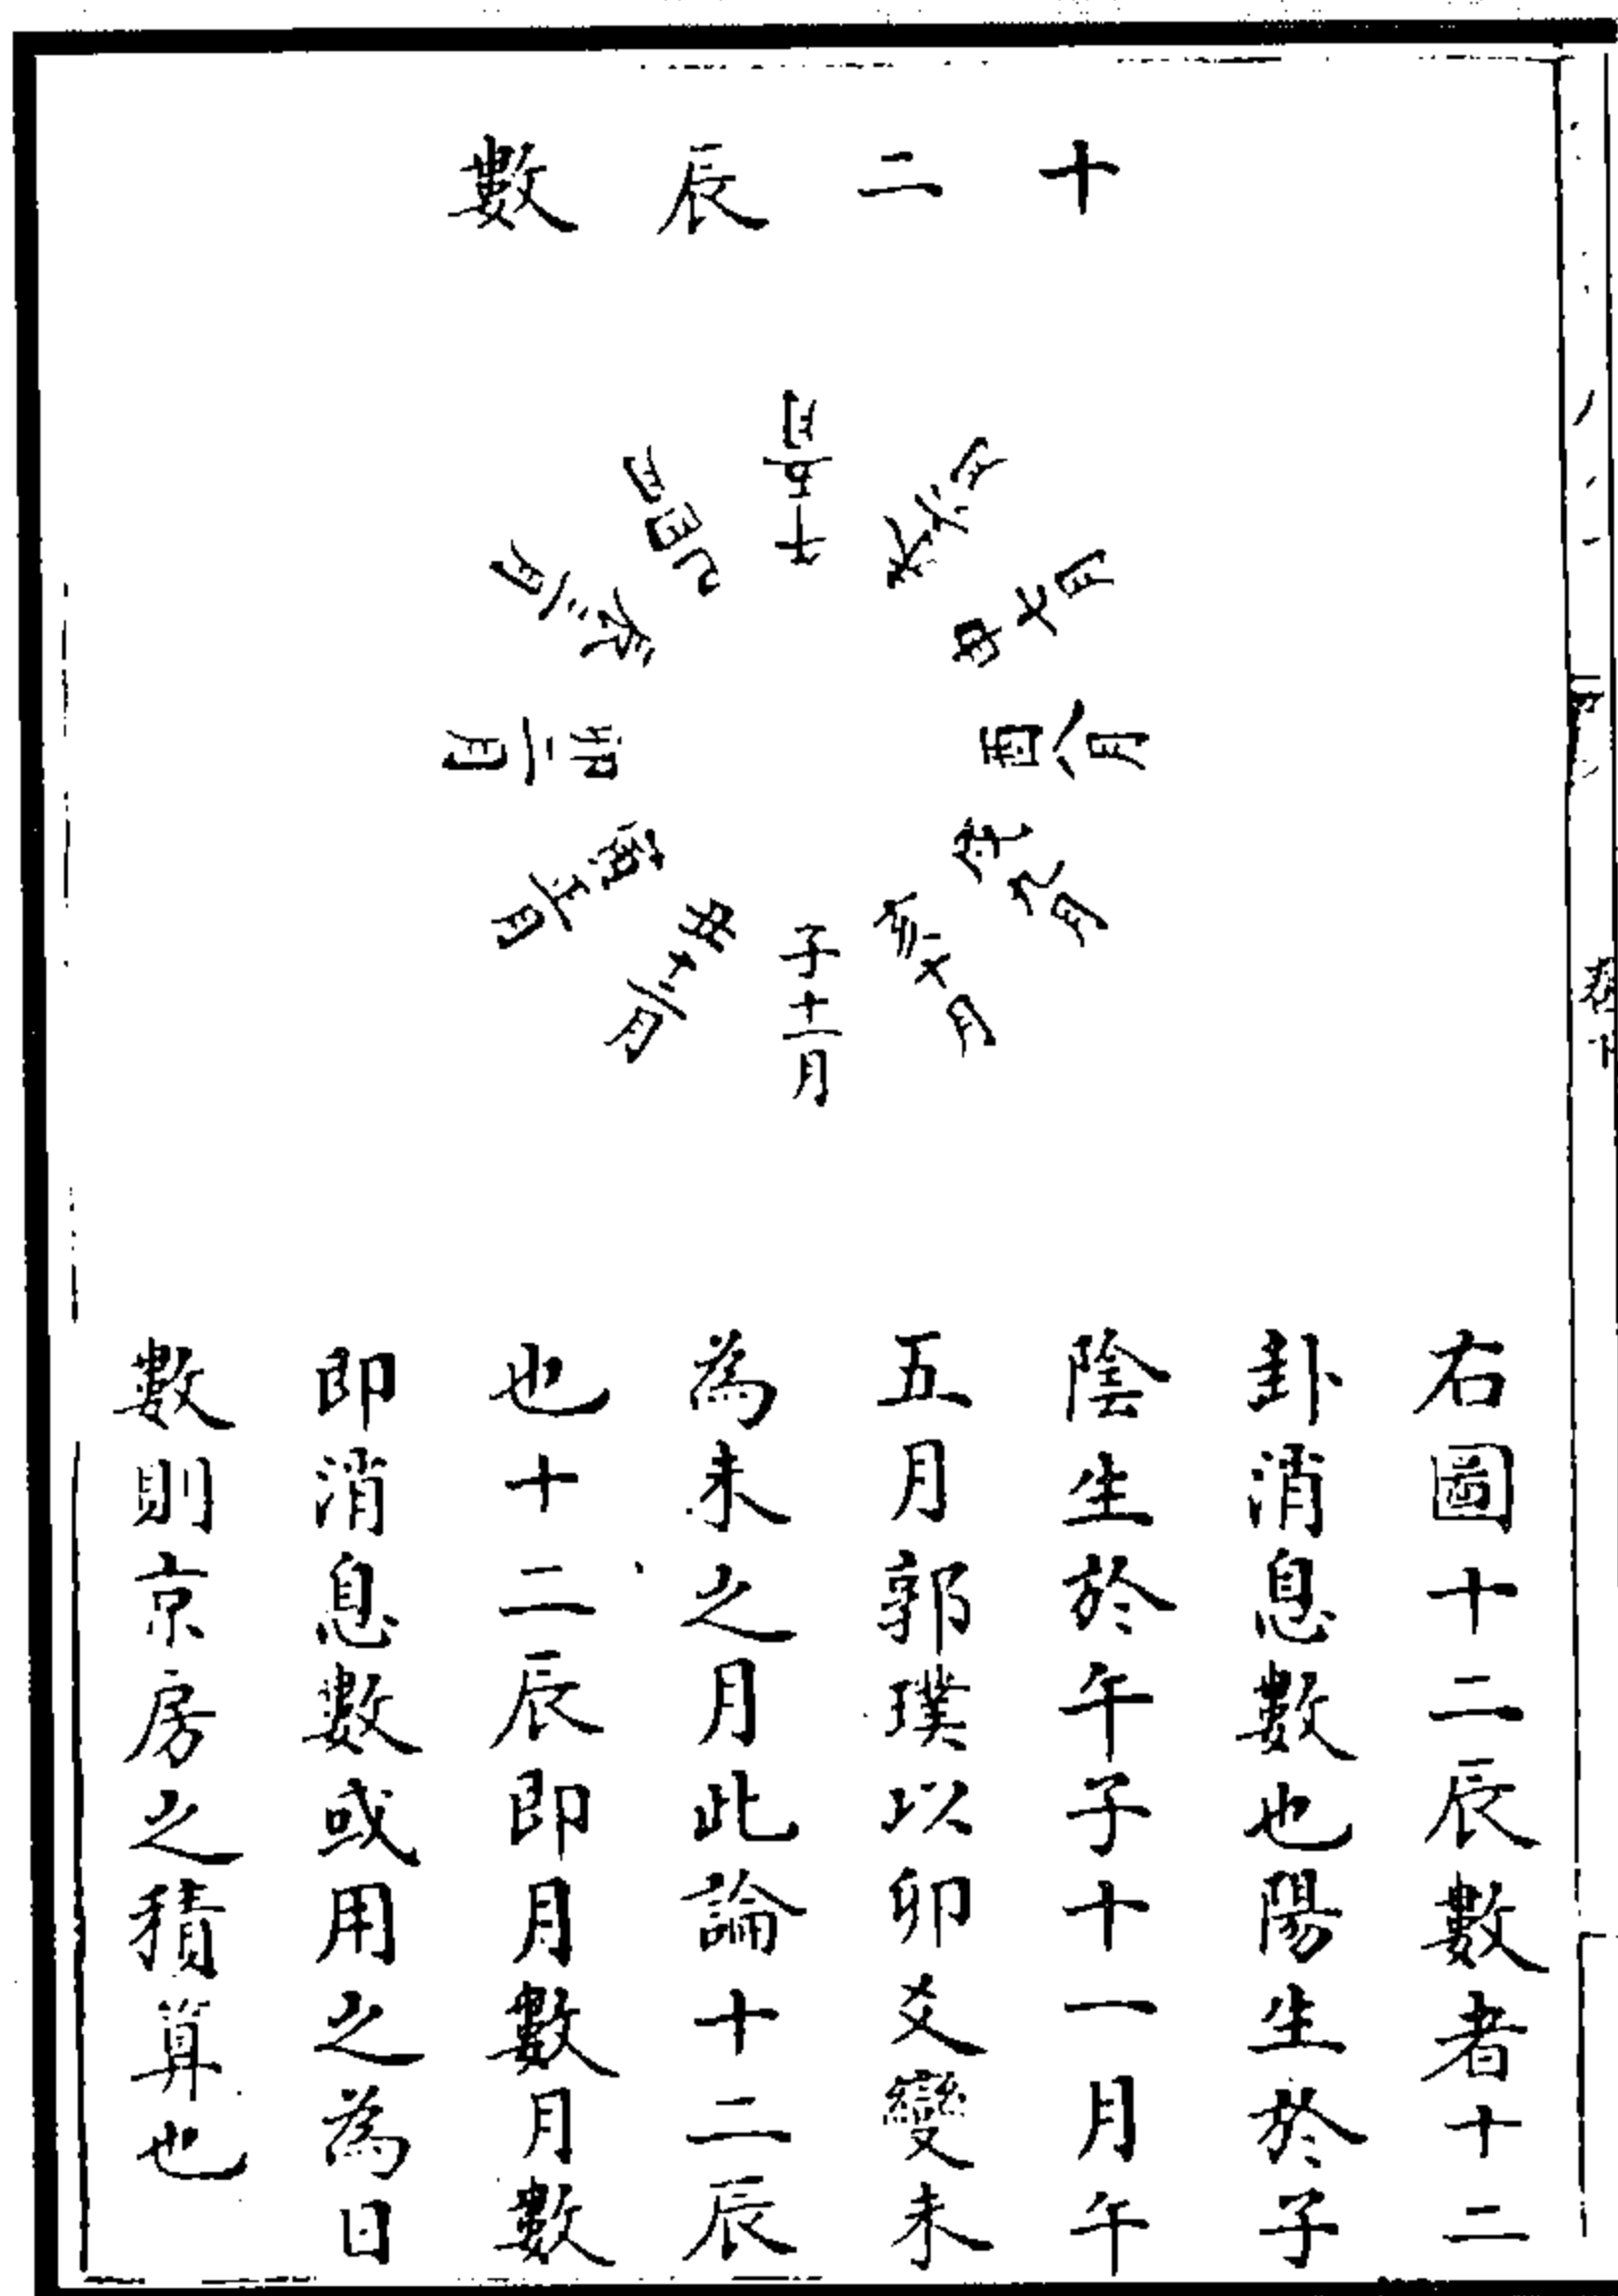 十二辰數
子十一月
丑十二月
寅正月
卯二月
辰三月
巳四月
午五月
未六月
申七月
酉八月
戌九月
亥十月
右圖十二辰數者十二
卦消息數也陽生於子
陰生於午子十一月午
五月郭璞以卯爻變未
為未之月此論十二辰
也十二辰即月數月數
即消息數或用之為日
數則京房之積算也
卷下